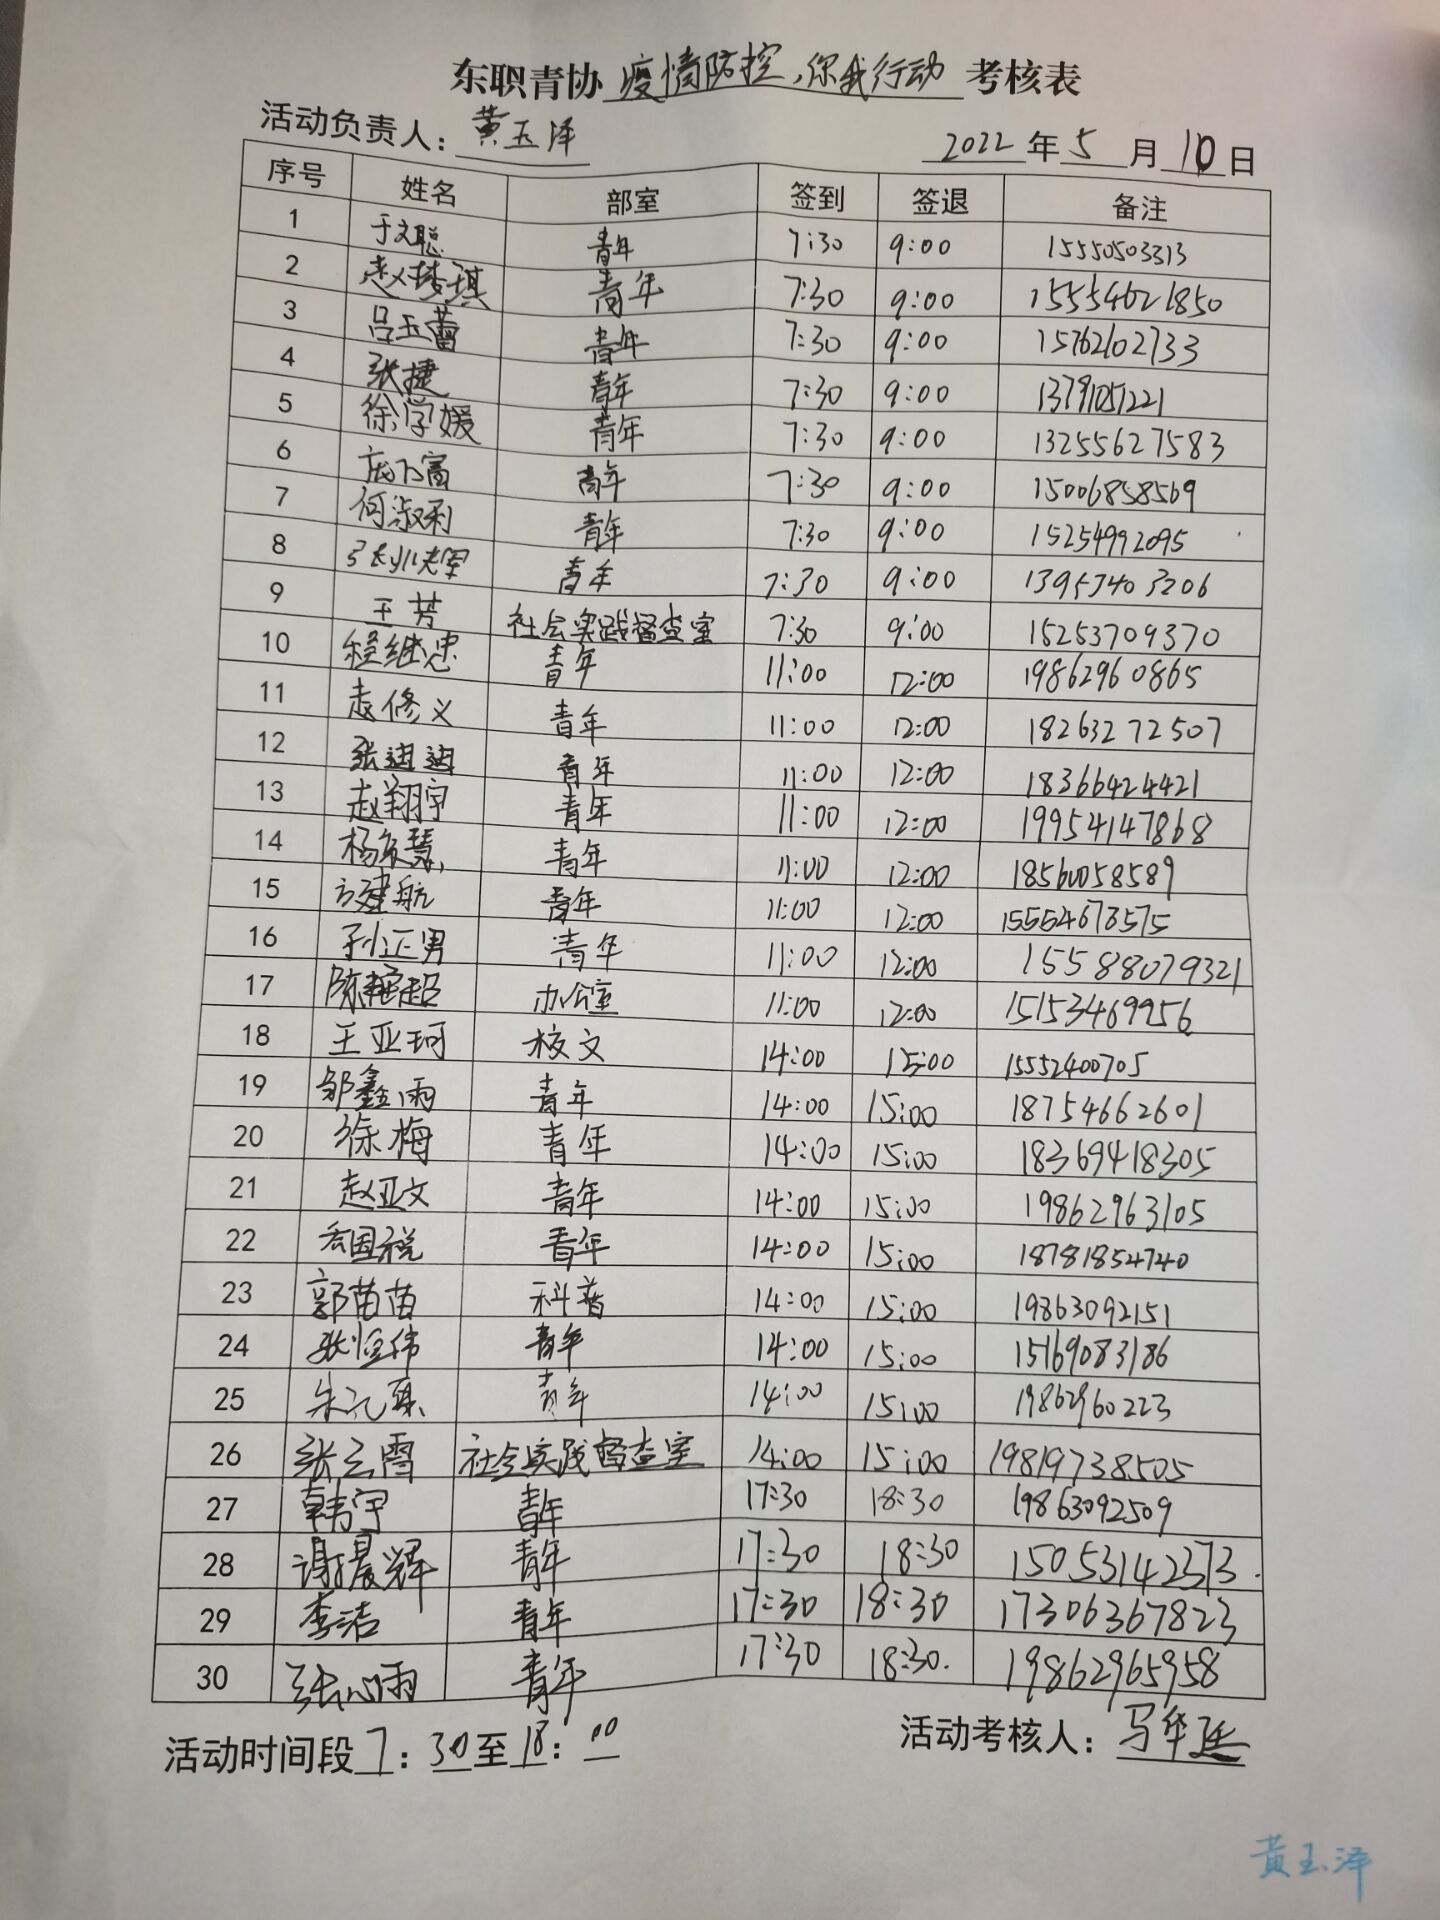 东职青协 疫情防控，你我行动 考核表
活动负责人：黄玉泽 2022年5月10日
序号 姓名 部室 签到 签退 备注
1 于文聪 青年 7:30 9:00 15550503313
2 赵梦琪 青年 7:30 9:00 15554621850
3 吕玉蕾 青年 7:30 9:00 15762102733
4 张捷 青年 7:30 9:00 13791051221
5 徐学媛 青年 7:30 9:00 13255627583
6 青年 7:30 9:00 15006858569
7 何淑利 青年 7:30 9:00 15254992095
8 青年 7:30 9:00 13953403206
9 王芳 社会实践督查室 7:30 9:00 15253709370
10 程继忠 青年 11:00 12:00 19862960865
11 赵修义 青年 11:00 12:00 18263272507
12 张迪迪 青年 11:00 12:00 18366424421
13 赵翔宇 青年 11:00 12:00 19954147868
14 青年 11:00 12:00 18560058589
15 方建航 青年 11:00 12:00 15554673575
16 孙正男 青年 11:00 12:00 15588079321
17 办公室 11:00 12:00 15153469956
18 王亚珂 校文 14:00 15:00 15552400705
19 邹鑫雨 青年 14:00 15:00 18754662601
20 徐梅 青年 14:00 15:00 18369418305
21 赵亚文 青年 14:00 15:00 19862963105
22 青年 14:00 15:00 18781854740
23 郭苗苗 科普 14:00 15:00 19863092151
24 张恒伟 青年 14:00 15:00 15169083186
25 青年 14:00 15:00 19862960223
26 张云霄 社会实践督查室 14:00 15:00 19819738505
27 韩宇 青年 17:30 18:30 19863092509
28 谢晨辉 青年 17:30 18:30 15053142373
29 李洁 青年 17:30 18:30 17306367823
30 张心雨 青年 17:30 18:30 19862965958
活动时间段 7：30至18：00 活动考核人：马华廷
黄玉泽